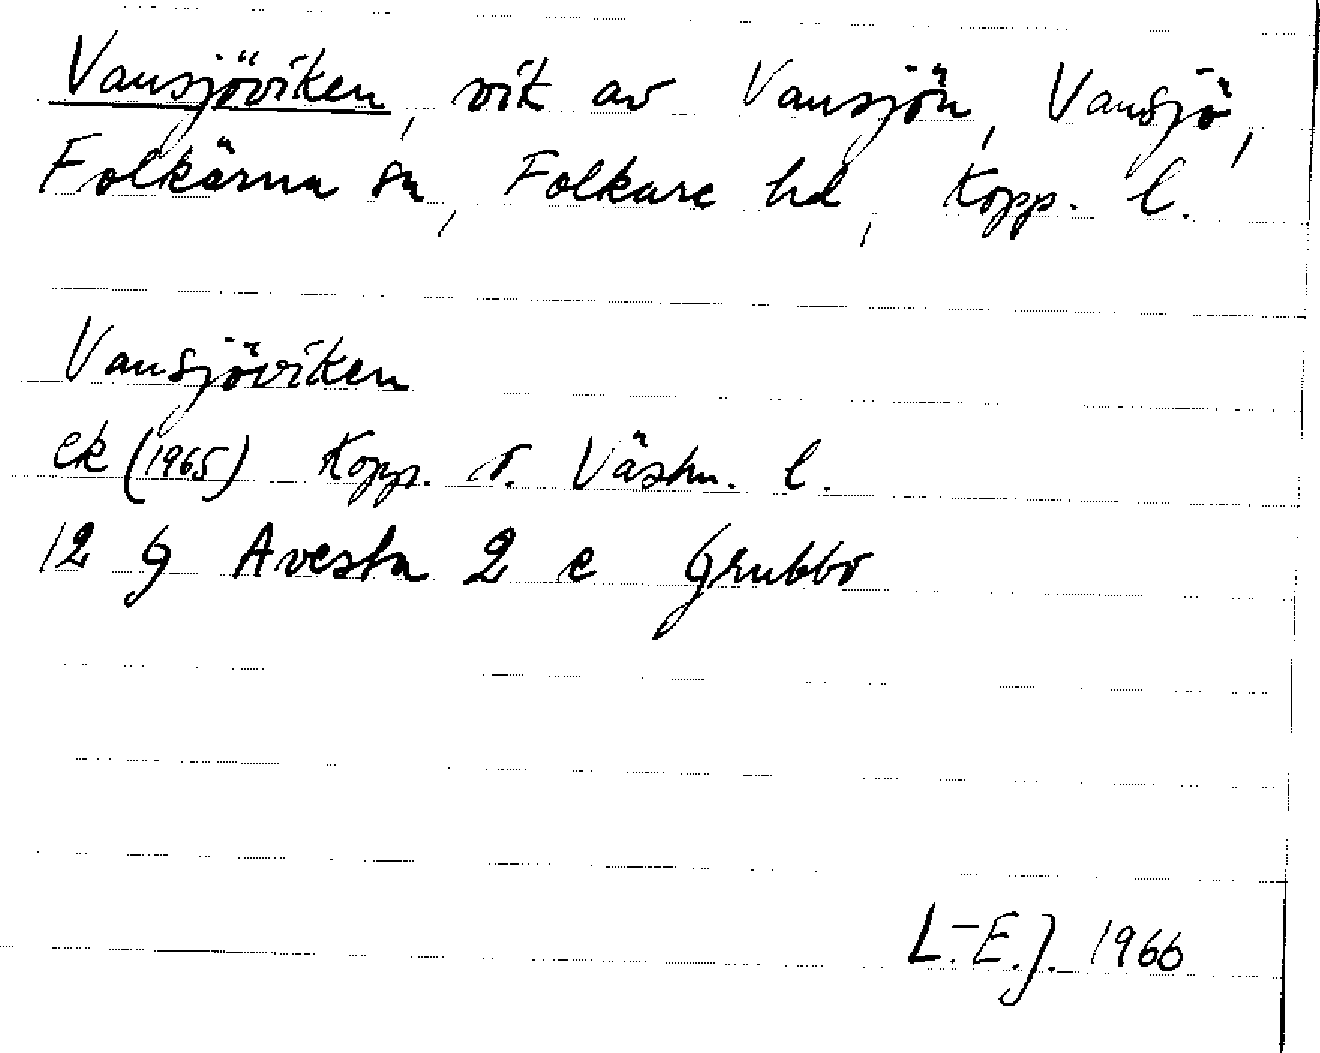 Vansjöviken, vik av Vansjön, Vansjö,
Folkärna sn, Folkare hd, Kopp. l.
Vansjöviken
ek (1965) Kopp. o. Västm. l.
12 G Avesta 2 e Grubbo
L.-E.J. 1966